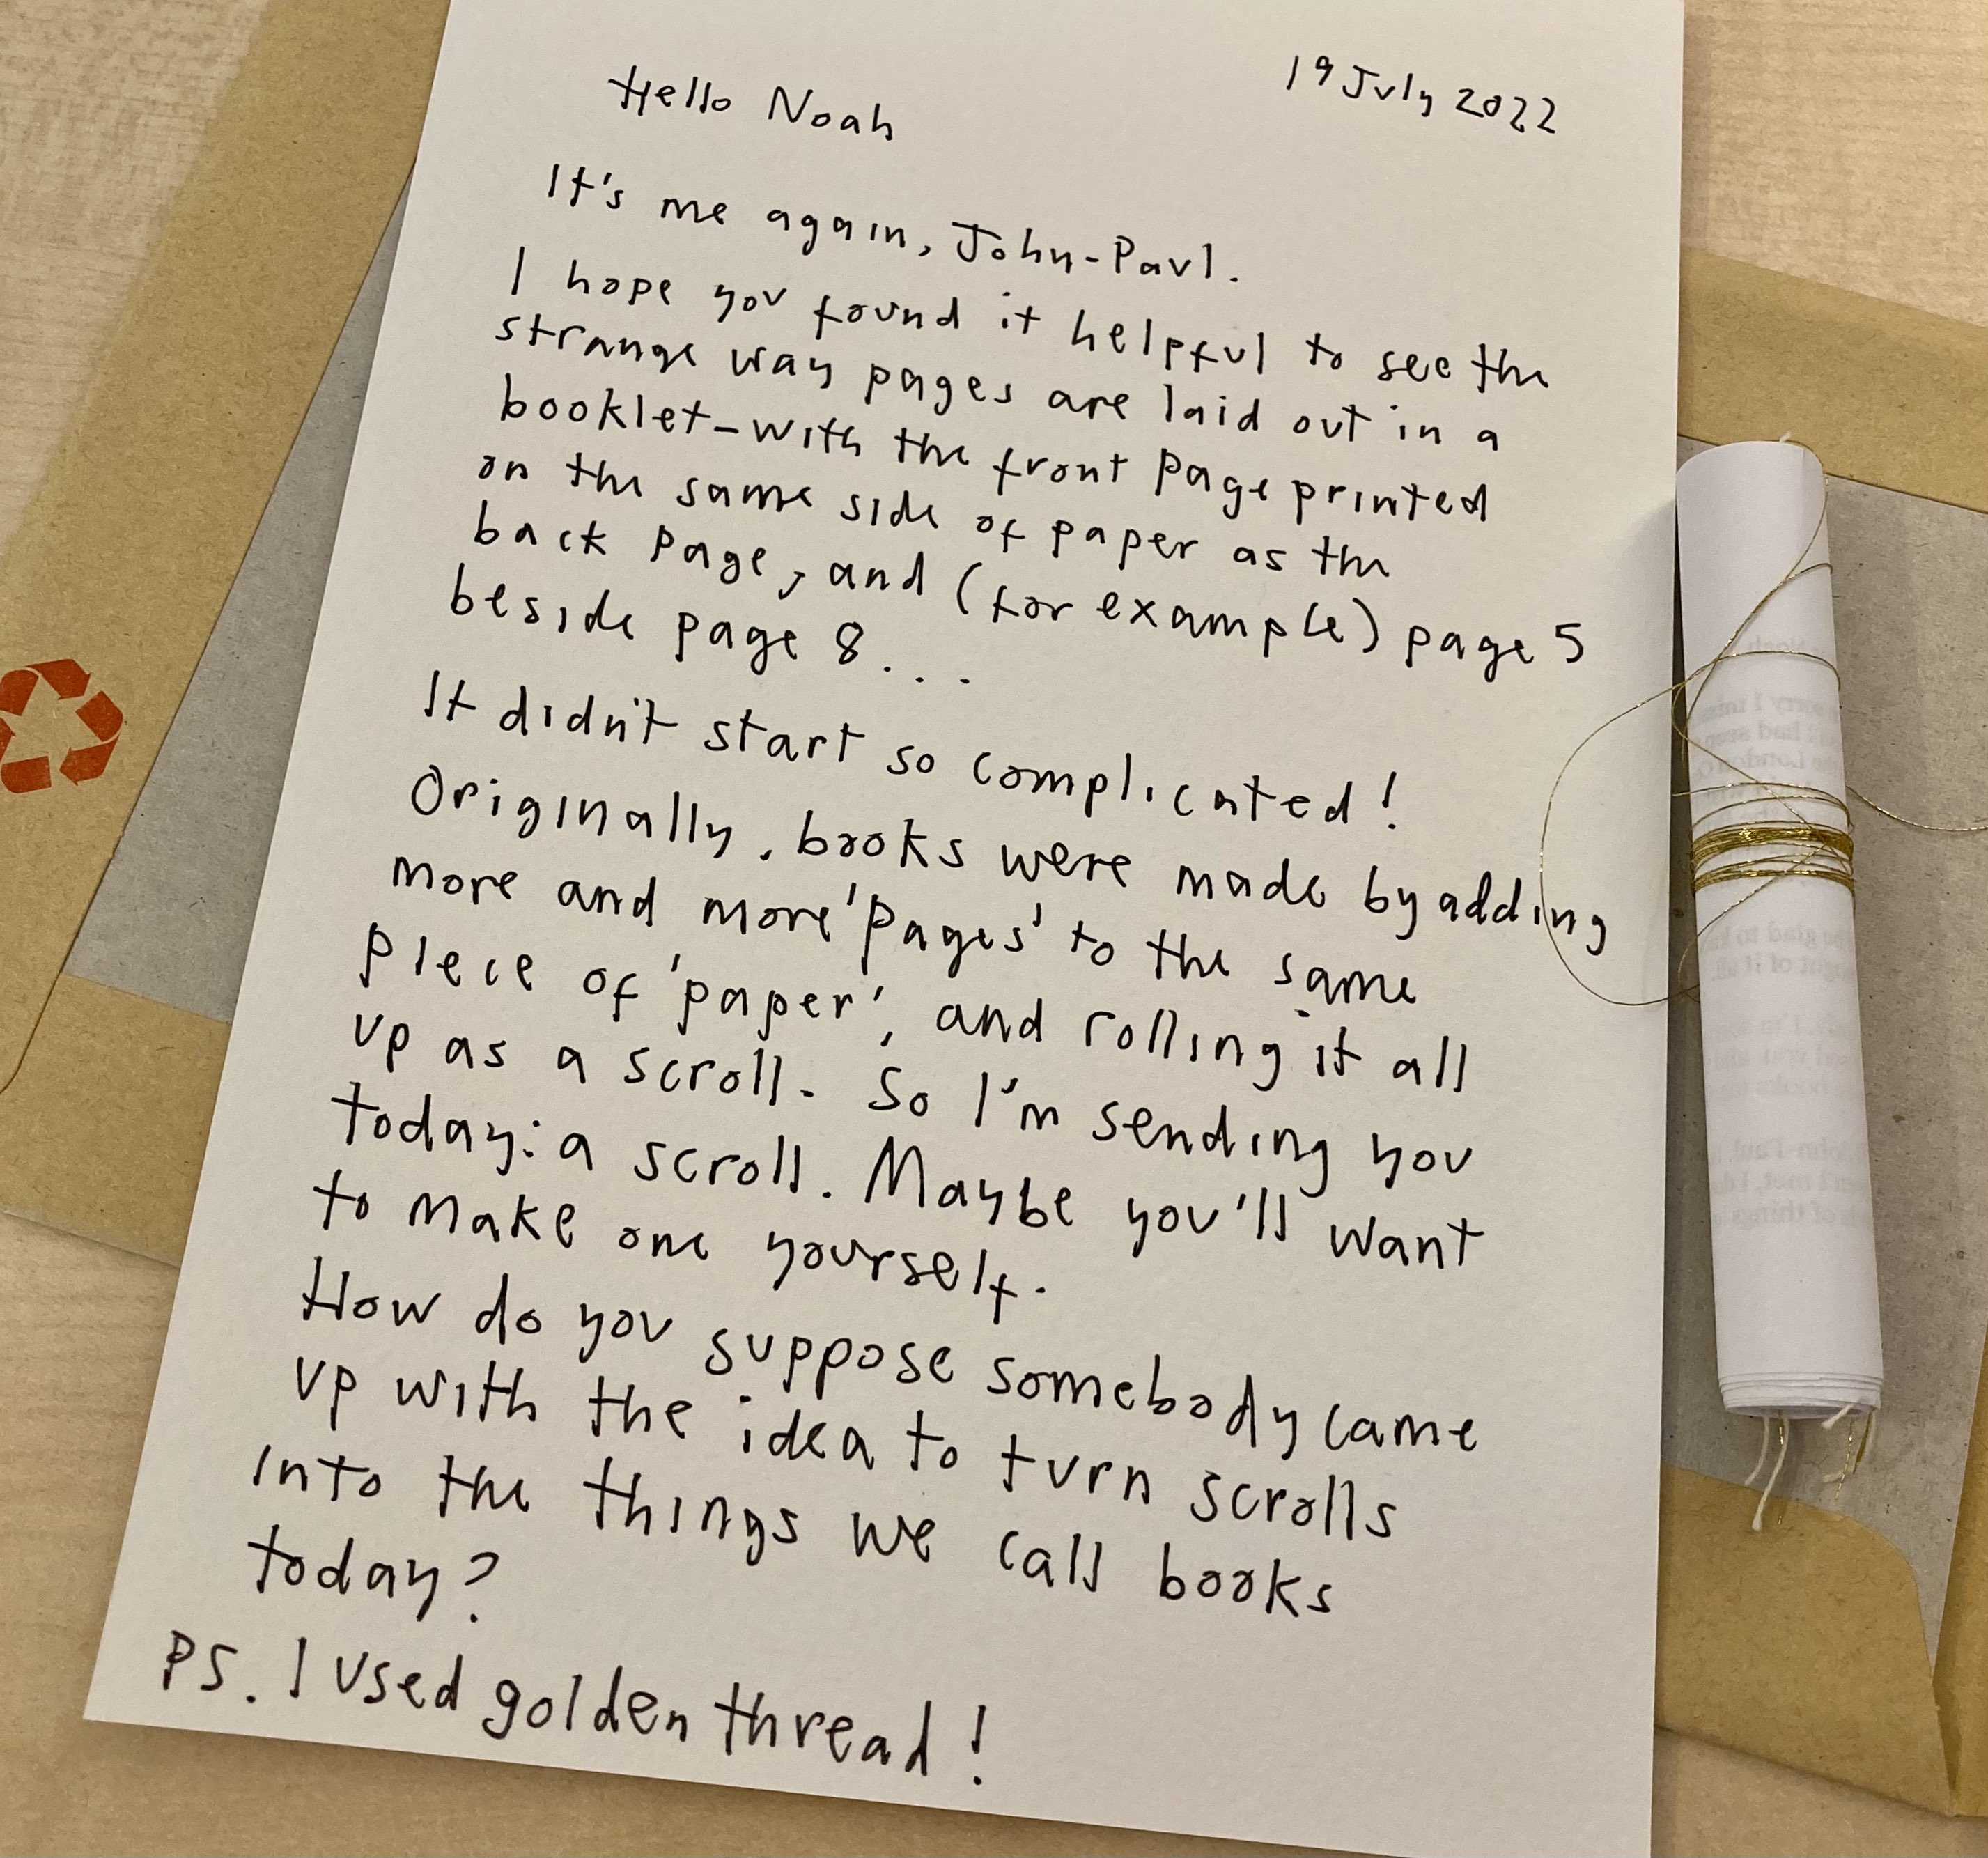 19 July 2022
Hello Noah
It's me again, John-Paul.
I hope you found it helpful to see the
strange way pages are laid out in a
booklet - with the front page printed
on the same side of paper as the
back page, and (for example) page 5
beside page 8...
It didn't start so complicated!
Originally, books were made by adding
more and more 'pages' to the same
piece of 'paper', and rolling it all
up as a scroll. So I'm sending you
today: a scroll. Maybe you'll want
to make one yourself.
How do you suppose somebody came
up with the idea to turn scrolls
into the things we call books
today?
PS. I used golden thread!